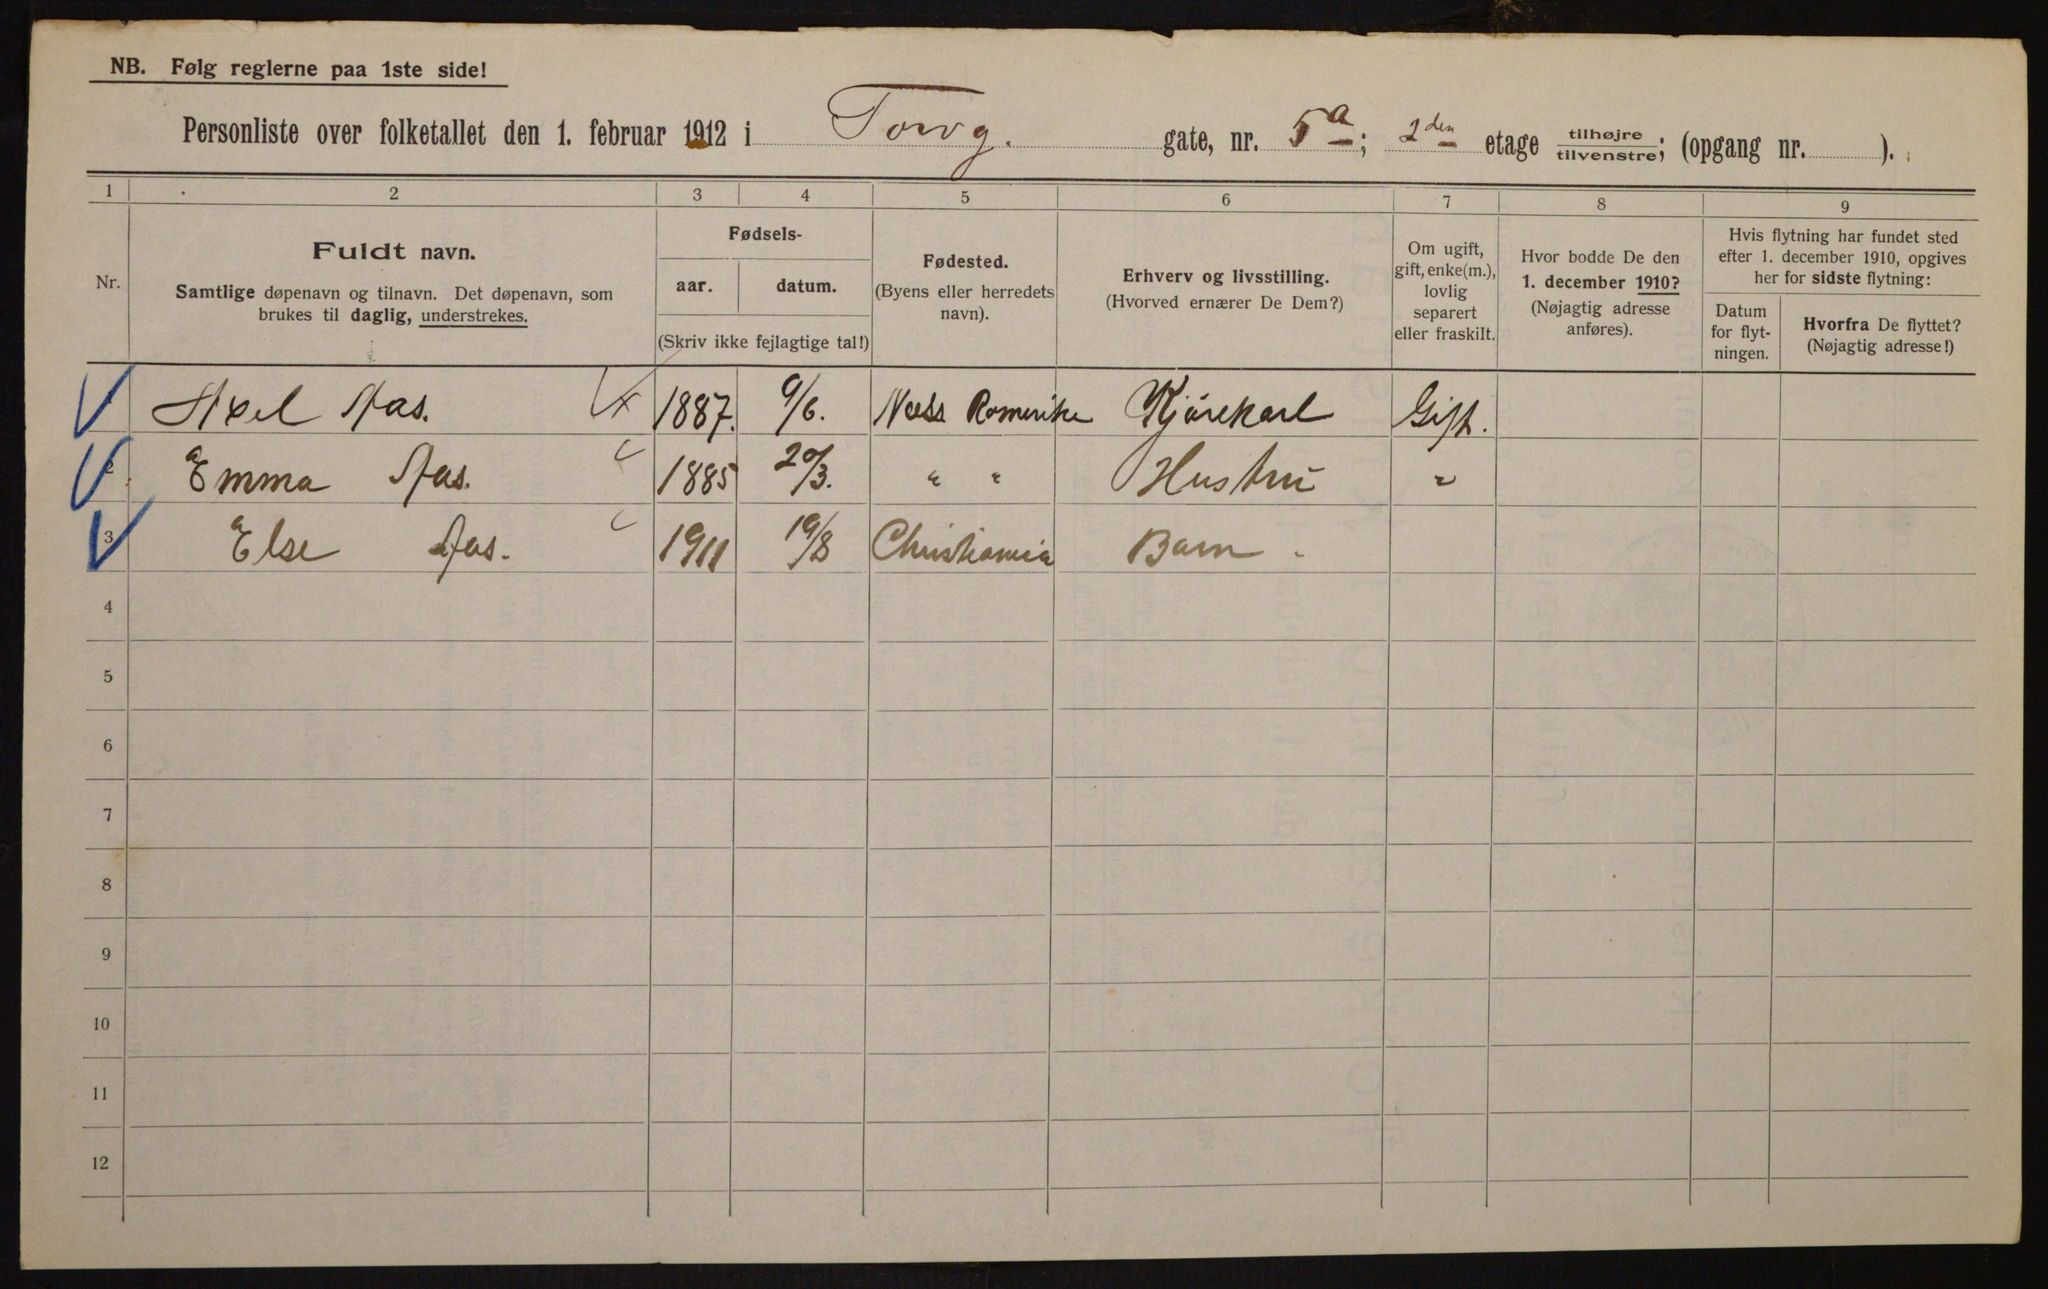 NB. Følg reglerne paa 1ste side!
Personliste over folketallet den 1. februar 1912 i Torvg. gate, nr. 5a; 2den etage tilhøjre/tilvenstre; (opgang nr. ).
1 2 3 4 5 6 7 8 9
Nr.
Fuldt navn.
Samtlige døpenavn og tilnavn. Det døpenavn, som
brukes til daglig, understrekes.
Fødsels-
aar. datum.
(Skriv ikke fejlagtige tal!)
Fødested.
(Byens eller herredets
navn).
Erhverv og livsstilling.
(Hvorved ernærer De Dem?)
Om ugift,
gift, enke(m.),
lovlig
separert
eller fraskilt.
Hvor bodde De den
1. december 1910?
(Nøjagtig adresse
anføres).
Hvis flytning har fundet sted
efter 1. december 1910, opgives
her for sidste flytning:
Datum
for flyt-
ningen.
Hvorfra De flyttet?
(Nøjagtig adresse!)
Axel Aas. 1887. 9/6. Næss Romerike Kjørekarl Gift.
2 Emma Aas. 1885 20/3. " " Hustru "
3 Else Aas. 1911 19/8 Christiania Barn
4
5
6
7
8
9
10
11
12